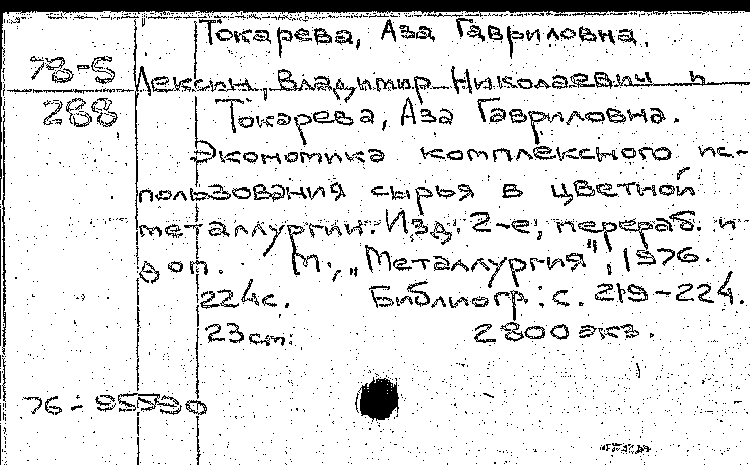 Токарева, Аза Гавриловна.
78-5 Лексин, Владимир Николаевич и
288 Токарева, Аза Гавриловна.
Экономика комплексного ис-
пользования сырья в цветной
металлургии. Изд. 2-е, перераб. и
доп. М., „Металлургия", 1976.
224с. Библиогр: с. 219-224.
23 см. 2800 экз.
76-95590